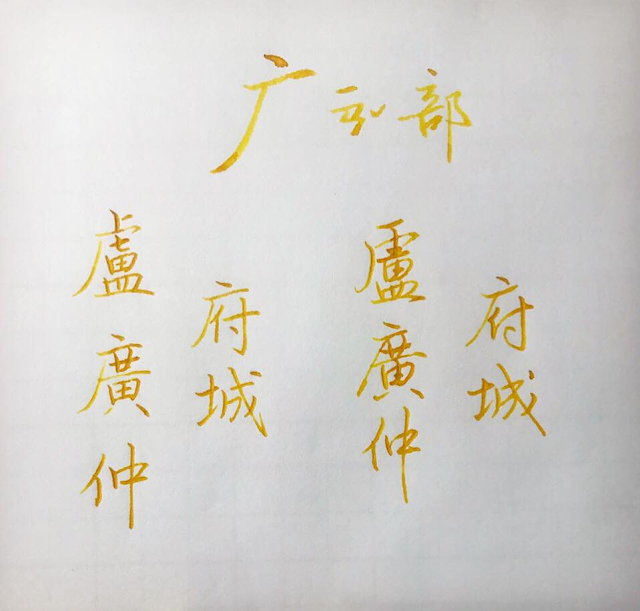 广部
府城
盧廣仲
府城
盧廣仲